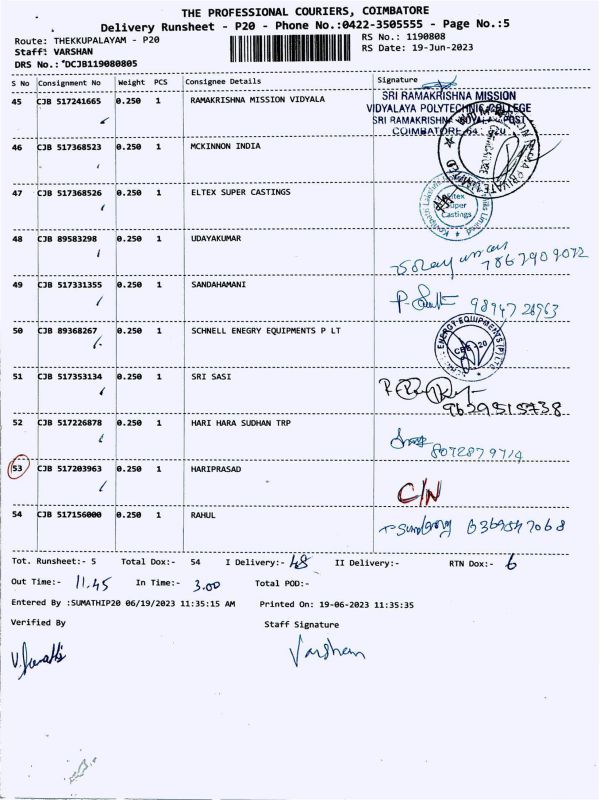 THE PROFESSIONAL COURIERS, COIMBATORE
Delivery Runsheet - P20 - Phone No.:0422-3505555 - Page No.:5
Route: THEKKUPALAYAM - P20
RS No.: 1190808
Staff: VARSHAN
RS Date: 19-Jun-2023
DRS No.: *DCJB119080805
S No Consignment No Weight PCS Consignee Details Signature
45 CJB 517241665 0.250 1 RAMAKRISHNA MISSION VIDYALA
SRI RAMAKRISHNA MISSION
VIDYALAYA POLYTECHNIC COLLEGE
SRI RAMAKRISHNA VIDYALAYA POST
COIMBATORE-64 020
46 CJB 517368523 0.250 1 MCKINNON INDIA
PRIVATE LIMITED
47 CJB 517368526 0.250 1 ELTEX SUPER CASTINGS
Eltex
Super
Castings
48 CJB 89583298 0.250 1 UDAYAKUMAR
7867909072
49 CJB 517331355 0.250 1 SANDAHAMANI
9894728963
50 CJB 89368267 0.250 1 SCHNELL ENEGRY EQUIPMENTS P LT
ENERGY EQUIPMENTS (P) LTD
51 CJB 517353134 0.250 1 SRI SASI
9629515738
52 CJB 517226878 0.250 1 HARI HARA SUDHAN TRP
8072879714
53 CJB 517203963 0.250 1 HARIPRASAD C/N
54 CJB 517156000 0.250 1 RAHUL
6369547068
Tot. Runsheet:- 5 Total Dox:- 54 I Delivery:- 48 II Delivery:- RTN Dox:- 6
Out Time:- 11.45 In Time:- 3.00 Total POD:-
Entered By :SUMATHIP20 06/19/2023 11:35:15 AM Printed On: 19-06-2023 11:35:35
Verified By Staff Signature
V. Sumathi Varshan